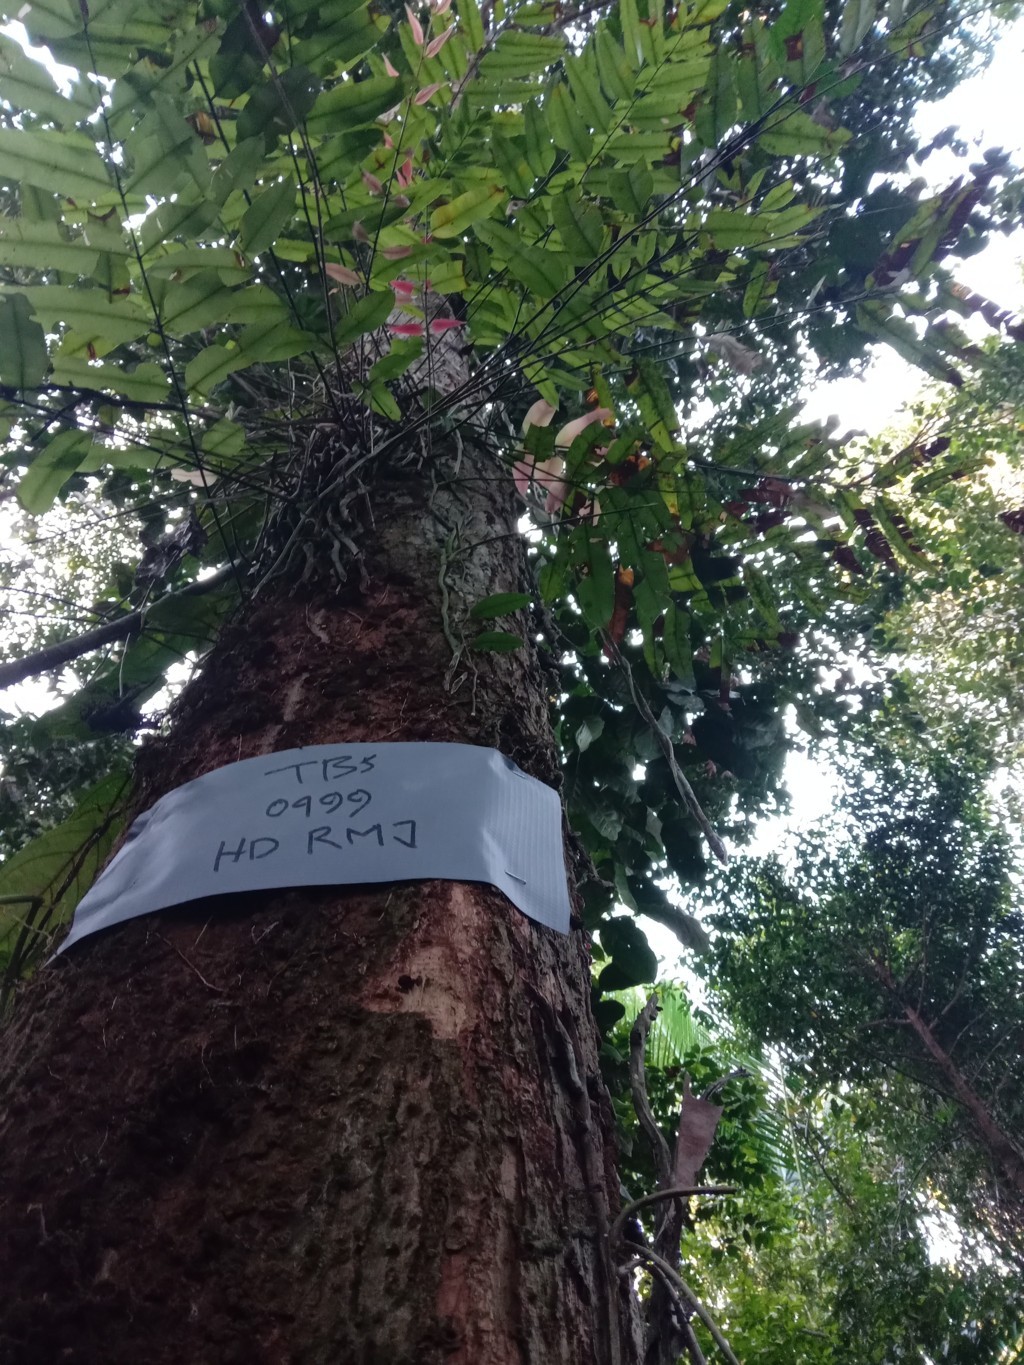 TBS
0499
HD RMJ